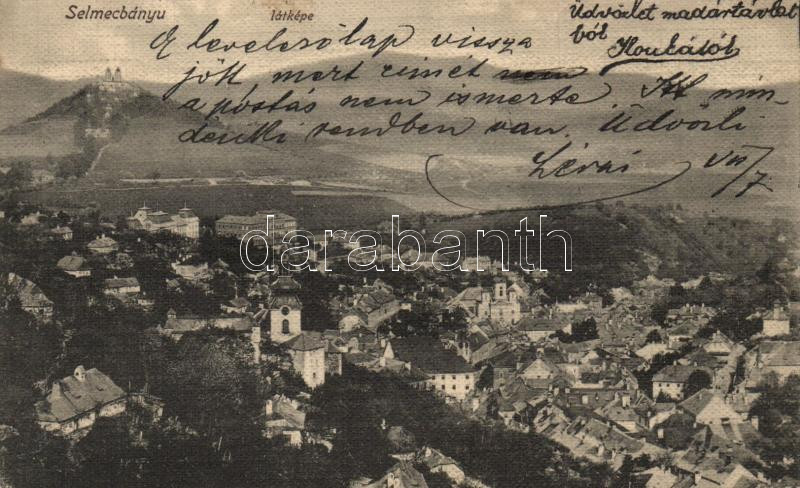 Selmecbányu
látképe
Üdvözlet madártávlat
ból
Honkától
A levelezőlap vissza
jött mert címét nem
a postás nem ismerte Itt min-
denki rendben van. Üdvözli
Lévai VII/7
darabanth